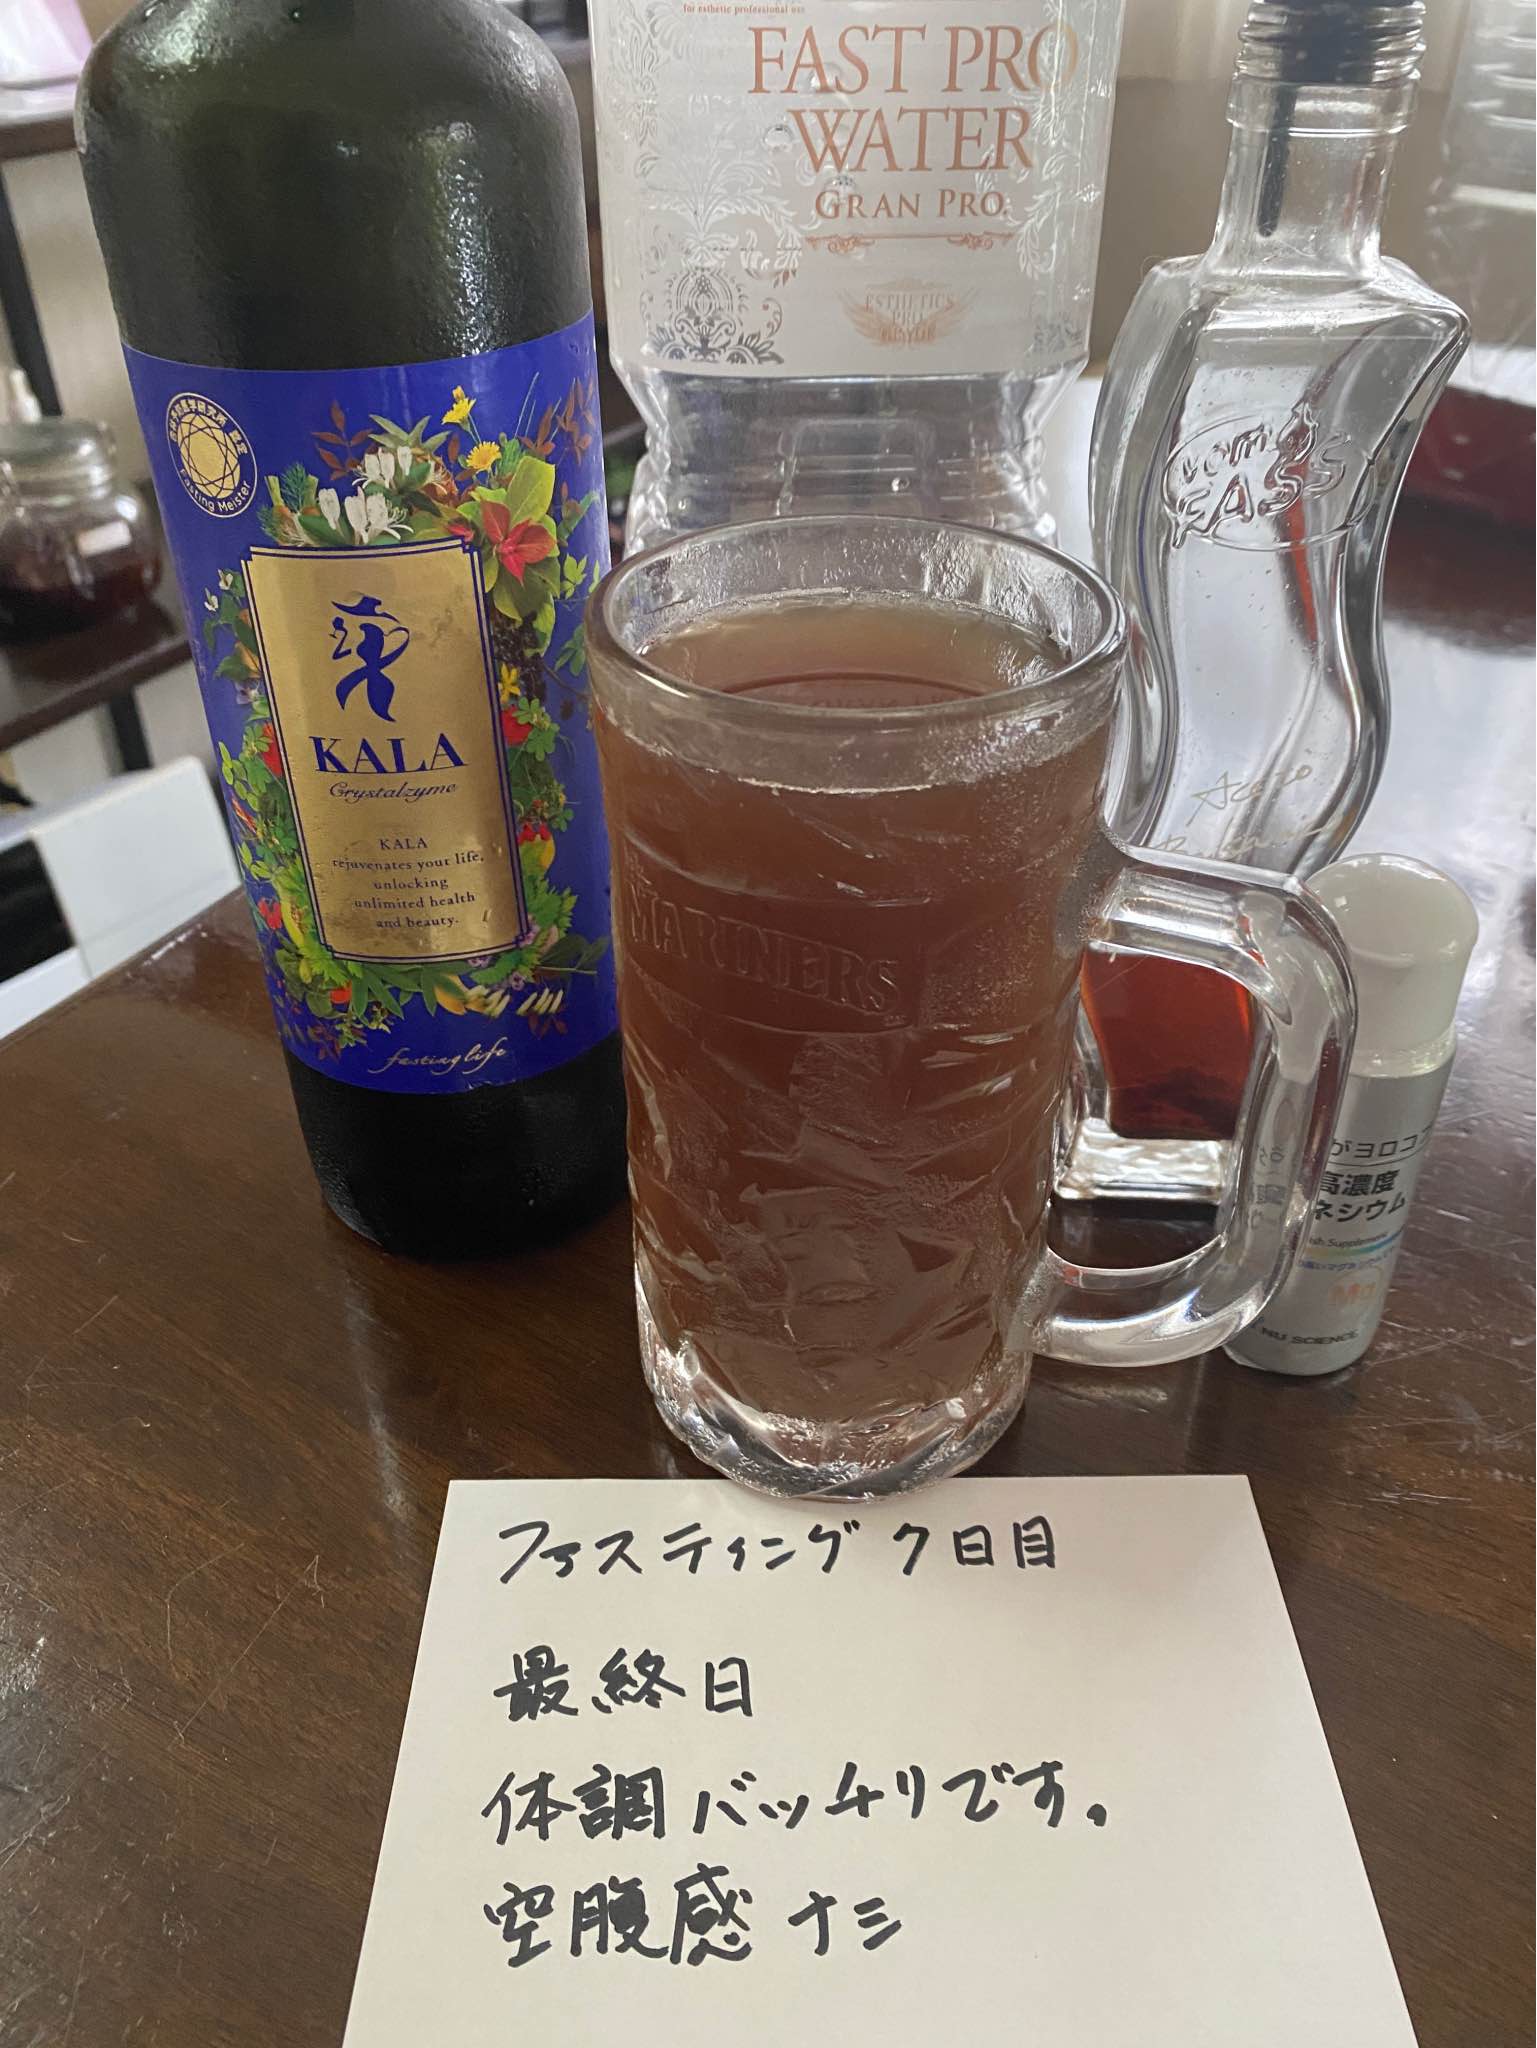 for esthetic professional use
FAST PRO
WATER
GRAN PRO.
ESTHETICS
PRO
Fasting Meister
KALA
Crystalzyme
KALA
rejuvenates your life,
unlocking
unlimited health
and beauty.
fasting life
FASS
Aceto
MARINERS
がヨロコブ
高濃度
ネシウム
Supplement
NU SCIENCE
ファスティング 7日目
最終日
体調バッチリです。
空腹感ナシ